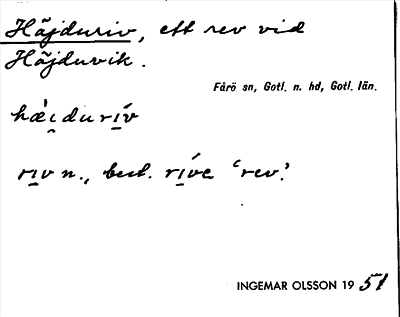 Häjduriv, ett rev vid
Häjduvik.
Fårö sn, Gotl. n. hd, Gotl. län.
hæ̀i̯durı̱́v
rı̱v n., best. rı̱́ve 'rev'.
INGEMAR OLSSON 1951